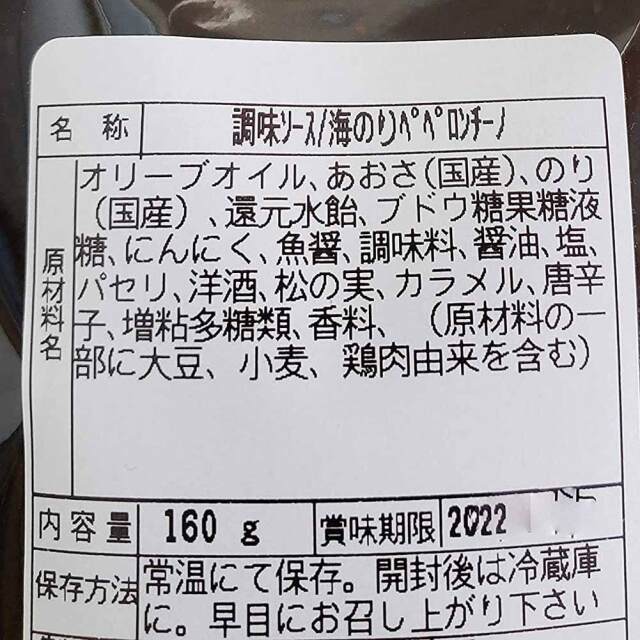 名称 調味ソース/海のりペペロンチーノ
原材料名
オリーブオイル、あおさ(国産)、のり
(国産)、還元水飴、ブドウ糖果糖液
糖、にんにく、魚醤、調味料、醤油、塩、
パセリ、洋酒、松の実、カラメル、唐辛
子、増粘多糖類、香料、(原材料の一
部に大豆、小麦、鶏肉由来を含む)
内容量 160 g 賞味期限 2022
保存方法 常温にて保存。開封後は冷蔵庫
に。早目にお召し上がり下さい